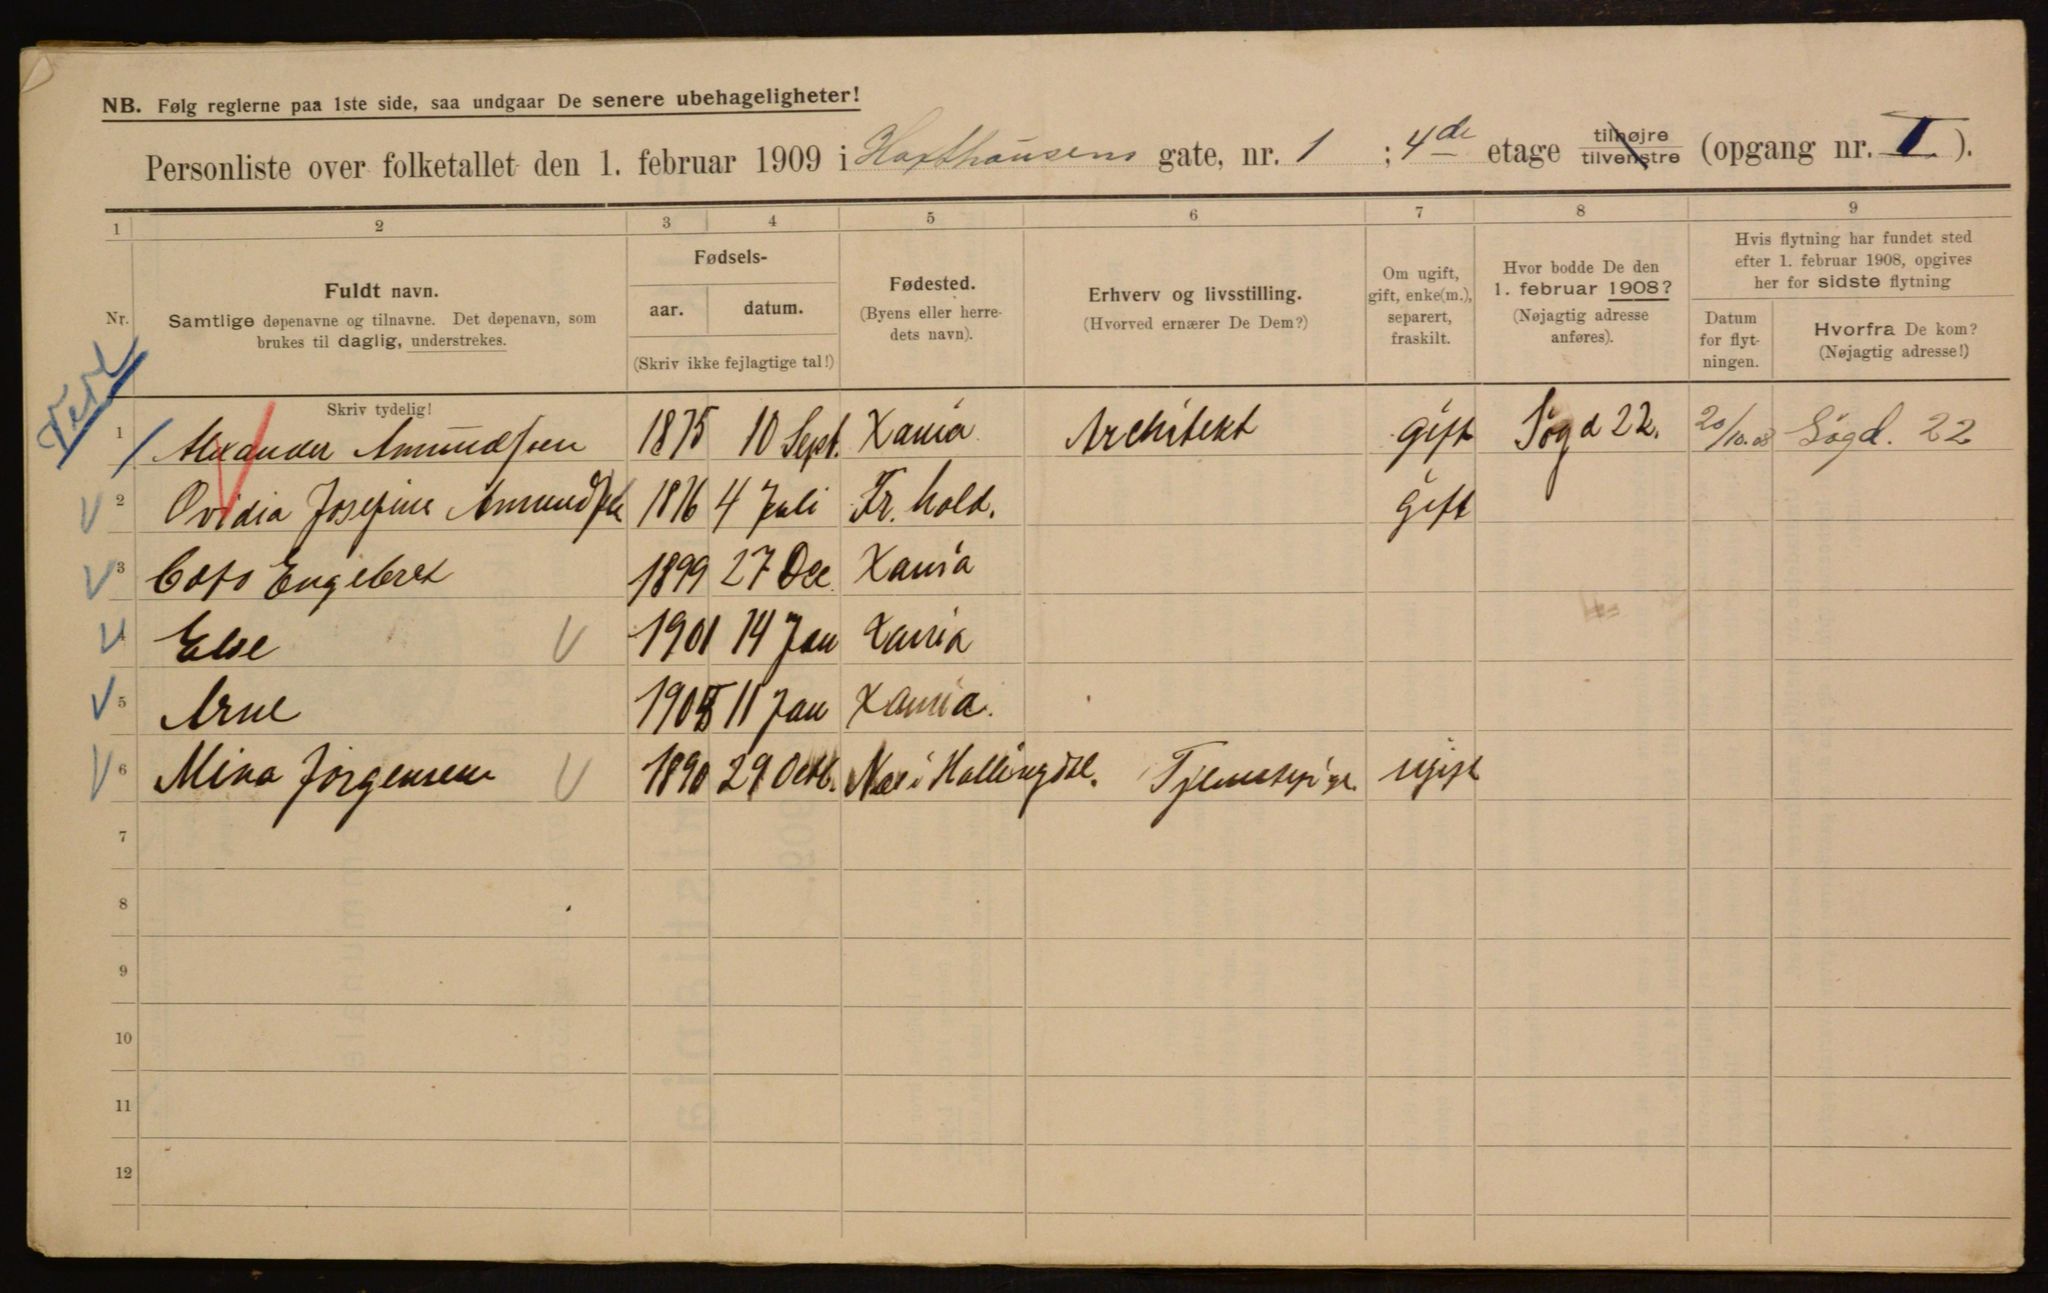 NB. Følg reglerne paa 1ste side, saa undgaar De senere ubehageligheter!
Personliste over folketallet den 1. februar 1909 i Haxthausens gate, nr. 1 ; 4de etage tilhøjre tilvenstre (opgang nr. I).
1 2 3 4 5 6 7 8 9
Nr. Fuldt navn. Samtlige døpenavne og tilnavne. Det døpenavn, som brukes til daglig, understrekes.
Fødsels- aar. datum. (Skriv ikke fejlagtige tal!)
Fødested. (Byens eller herredets navn).
Erhverv og livsstilling. (Hvorved ernærer De Dem?)
Om ugift, gift, enke(m.), separert, fraskilt.
Hvor bodde De den 1. februar 1908? (Nøjagtig adresse anføres).
Hvis flytning har fundet sted efter 1. februar 1908, opgives her for sidste flytning
Datum for flytningen. Hvorfra De kom? (Nøjagtig adresse!)
Skriv tydelig!
1 Alexander Amundsen 1875 10 Sept. Xania Architekt gift Søgd 22. 20/10.08 Søgd. 22
2 Ovidia Josefine Amundsen 1876 4 Juli Fr. hald. gift
3 Engebret 1899 27 Dec. Xania
Else 1901 14 Jan Xania
5 Arne 11 Jan Xania.
6 Mina Jørgensen 1890 29 Octb. Næs i Hallingdal. Tjenestepige ugift
7
8
9
10
11
12